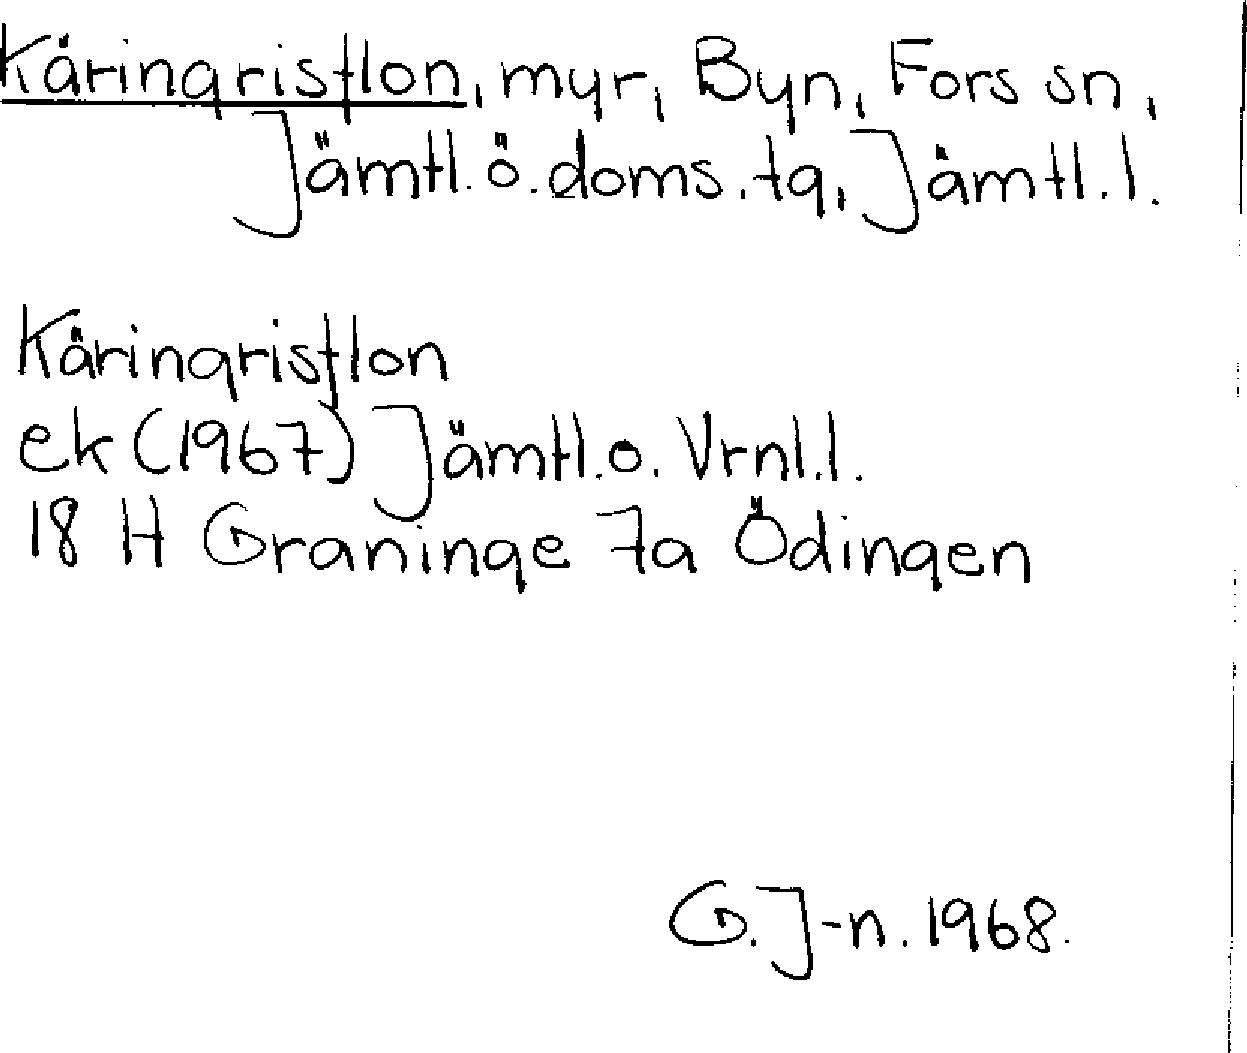 Käringristlon, myr, Byn, Fors sn,
Jämtl. ö. doms. tg, Jämtl. l.
Käringristlon
ek (1967) Jämtl. o. Vrnl. l.
18 H Graninge 7a Ödingen
G. J-n. 1968.